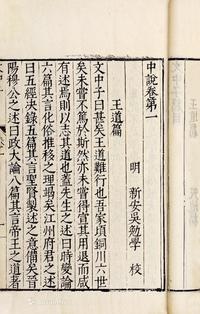 中說卷第一
明 新安吳勉學 校
王道篇
文中子曰甚矣王道難行也吾家頃銅川六世
矣未嘗不篤於斯然亦未嘗得宣其用退而咸
有述焉則以志其道也蓋先生之述曰時變論
六篇其言化俗推移之理竭矣江州府君之述
曰五經決錄五篇其言聖賢製述之意備矣晉
陽穆公之述曰政大論八篇其言帝王之道著